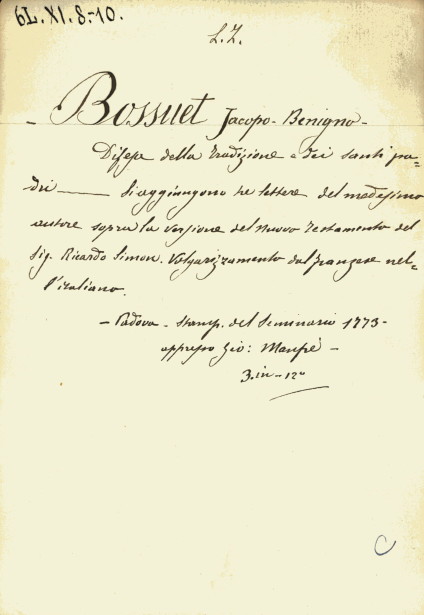 6L. XI. 8-10.
L. Z.
- Bossuet Jacopo-Benigno-
Difesa della tradizione e dei santi pa=
dri —— Si aggiungono tre lettere del medesimo
autore sopra la versione del Nuovo Testamento del
Sig. Ricardo Simon. Volgarizzamento dal franzese nel=
l'italiano.
- Padova - Stamp. del Seminario 1773-
appresso Gio: Manfrè -
3. in-12º
C